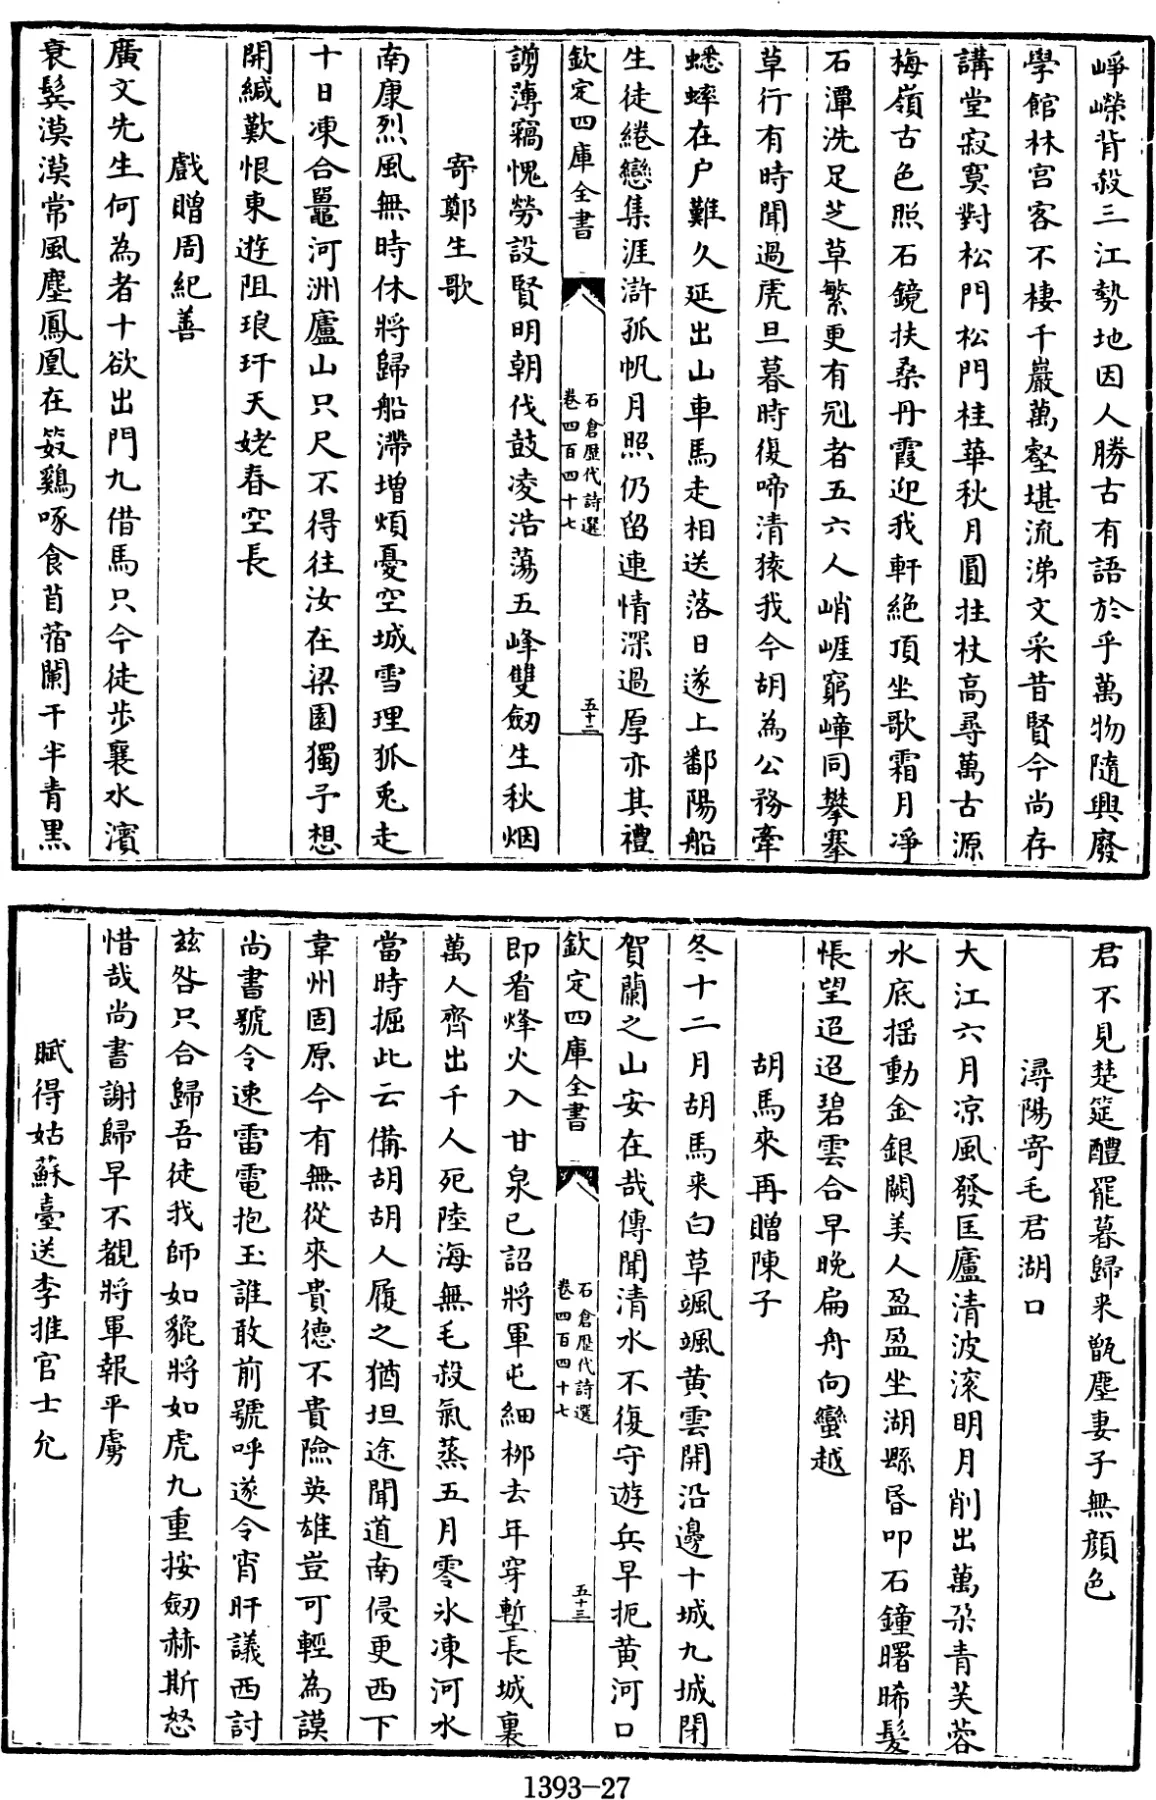 崢嶸背殺三江勢地因人勝古有語於乎萬物隨興廢
學館林宫客不棲千巖萬壑堪流涕文采昔賢今尚存
講堂寂寞對松門松門桂華秋月圓拄杖高尋萬古源
梅嶺古色照石鏡扶桑丹霞迎我軒絶頂坐歌霜月凈
石潭洗足芝草繁更有冠者五六人峭崕窮嶂同攀搴
草行有時聞過虎旦暮時復啼清猿我今胡為公務牽
蟋蟀在户難久延出山車馬走相送落日遂上鄱陽船
生徒綣戀集涯滸孤帆月照仍留連情深過厚亦其禮
欽定四庫全書
石倉歷代詩選
卷四百四十七
五十二
謭薄竊愧勞設賢明朝伐鼓凌浩蕩五峰雙劒生秋烟
寄鄭生歌
南康烈風無時休將歸船滯增煩憂空城雪理狐兎走
十日凍合鼉河洲廬山只尺不得往汝在梁園獨予想
開緘歎恨東遊阻琅玕天姥春空長
戲贈周紀善
廣文先生何為者十欲出門九借馬只今徒步襄水濱
衰髩漠漠常風塵鳳凰在笯鷄啄食苜蓿闌干半青黑
君不見楚筵醴罷暮歸来甑塵妻子無顔色
潯陽寄毛君湖口
大江六月凉風發匡廬清波滚明月削出萬朶青芙蓉
水底摇動金銀闕美人盈盈坐湖縣昏叩石鐘曙晞髮
悵望迢迢碧雲合早晚扁舟向蠻越
胡馬來再贈陳子
冬十二月胡馬来白草颯颯黄雲開沿邊十城九城閉
賀蘭之山安在哉傳聞清水不復守遊兵早扼黄河口
欽定四庫全書
石倉歷代詩選
卷四百四十七
五十三
即看烽火入甘泉已詔將軍屯細柳去年穿塹長城裏
萬人齊出千人死陸海無毛殺氣蒸五月零氷凍河水
當時掘此云備胡胡人履之猶坦途聞道南侵更西下
韋州固原今有無從來貴德不貴險英雄豈可輕為謨
尚書號令速雷電抱玉誰敢前號呼遂令宵旰議西討
兹咎只合歸吾徒我師如貔將如虎九重按劒赫斯怒
惜哉尚書謝歸早不覩將軍報平虜
賦得姑蘇臺送李推官士允
1393-27